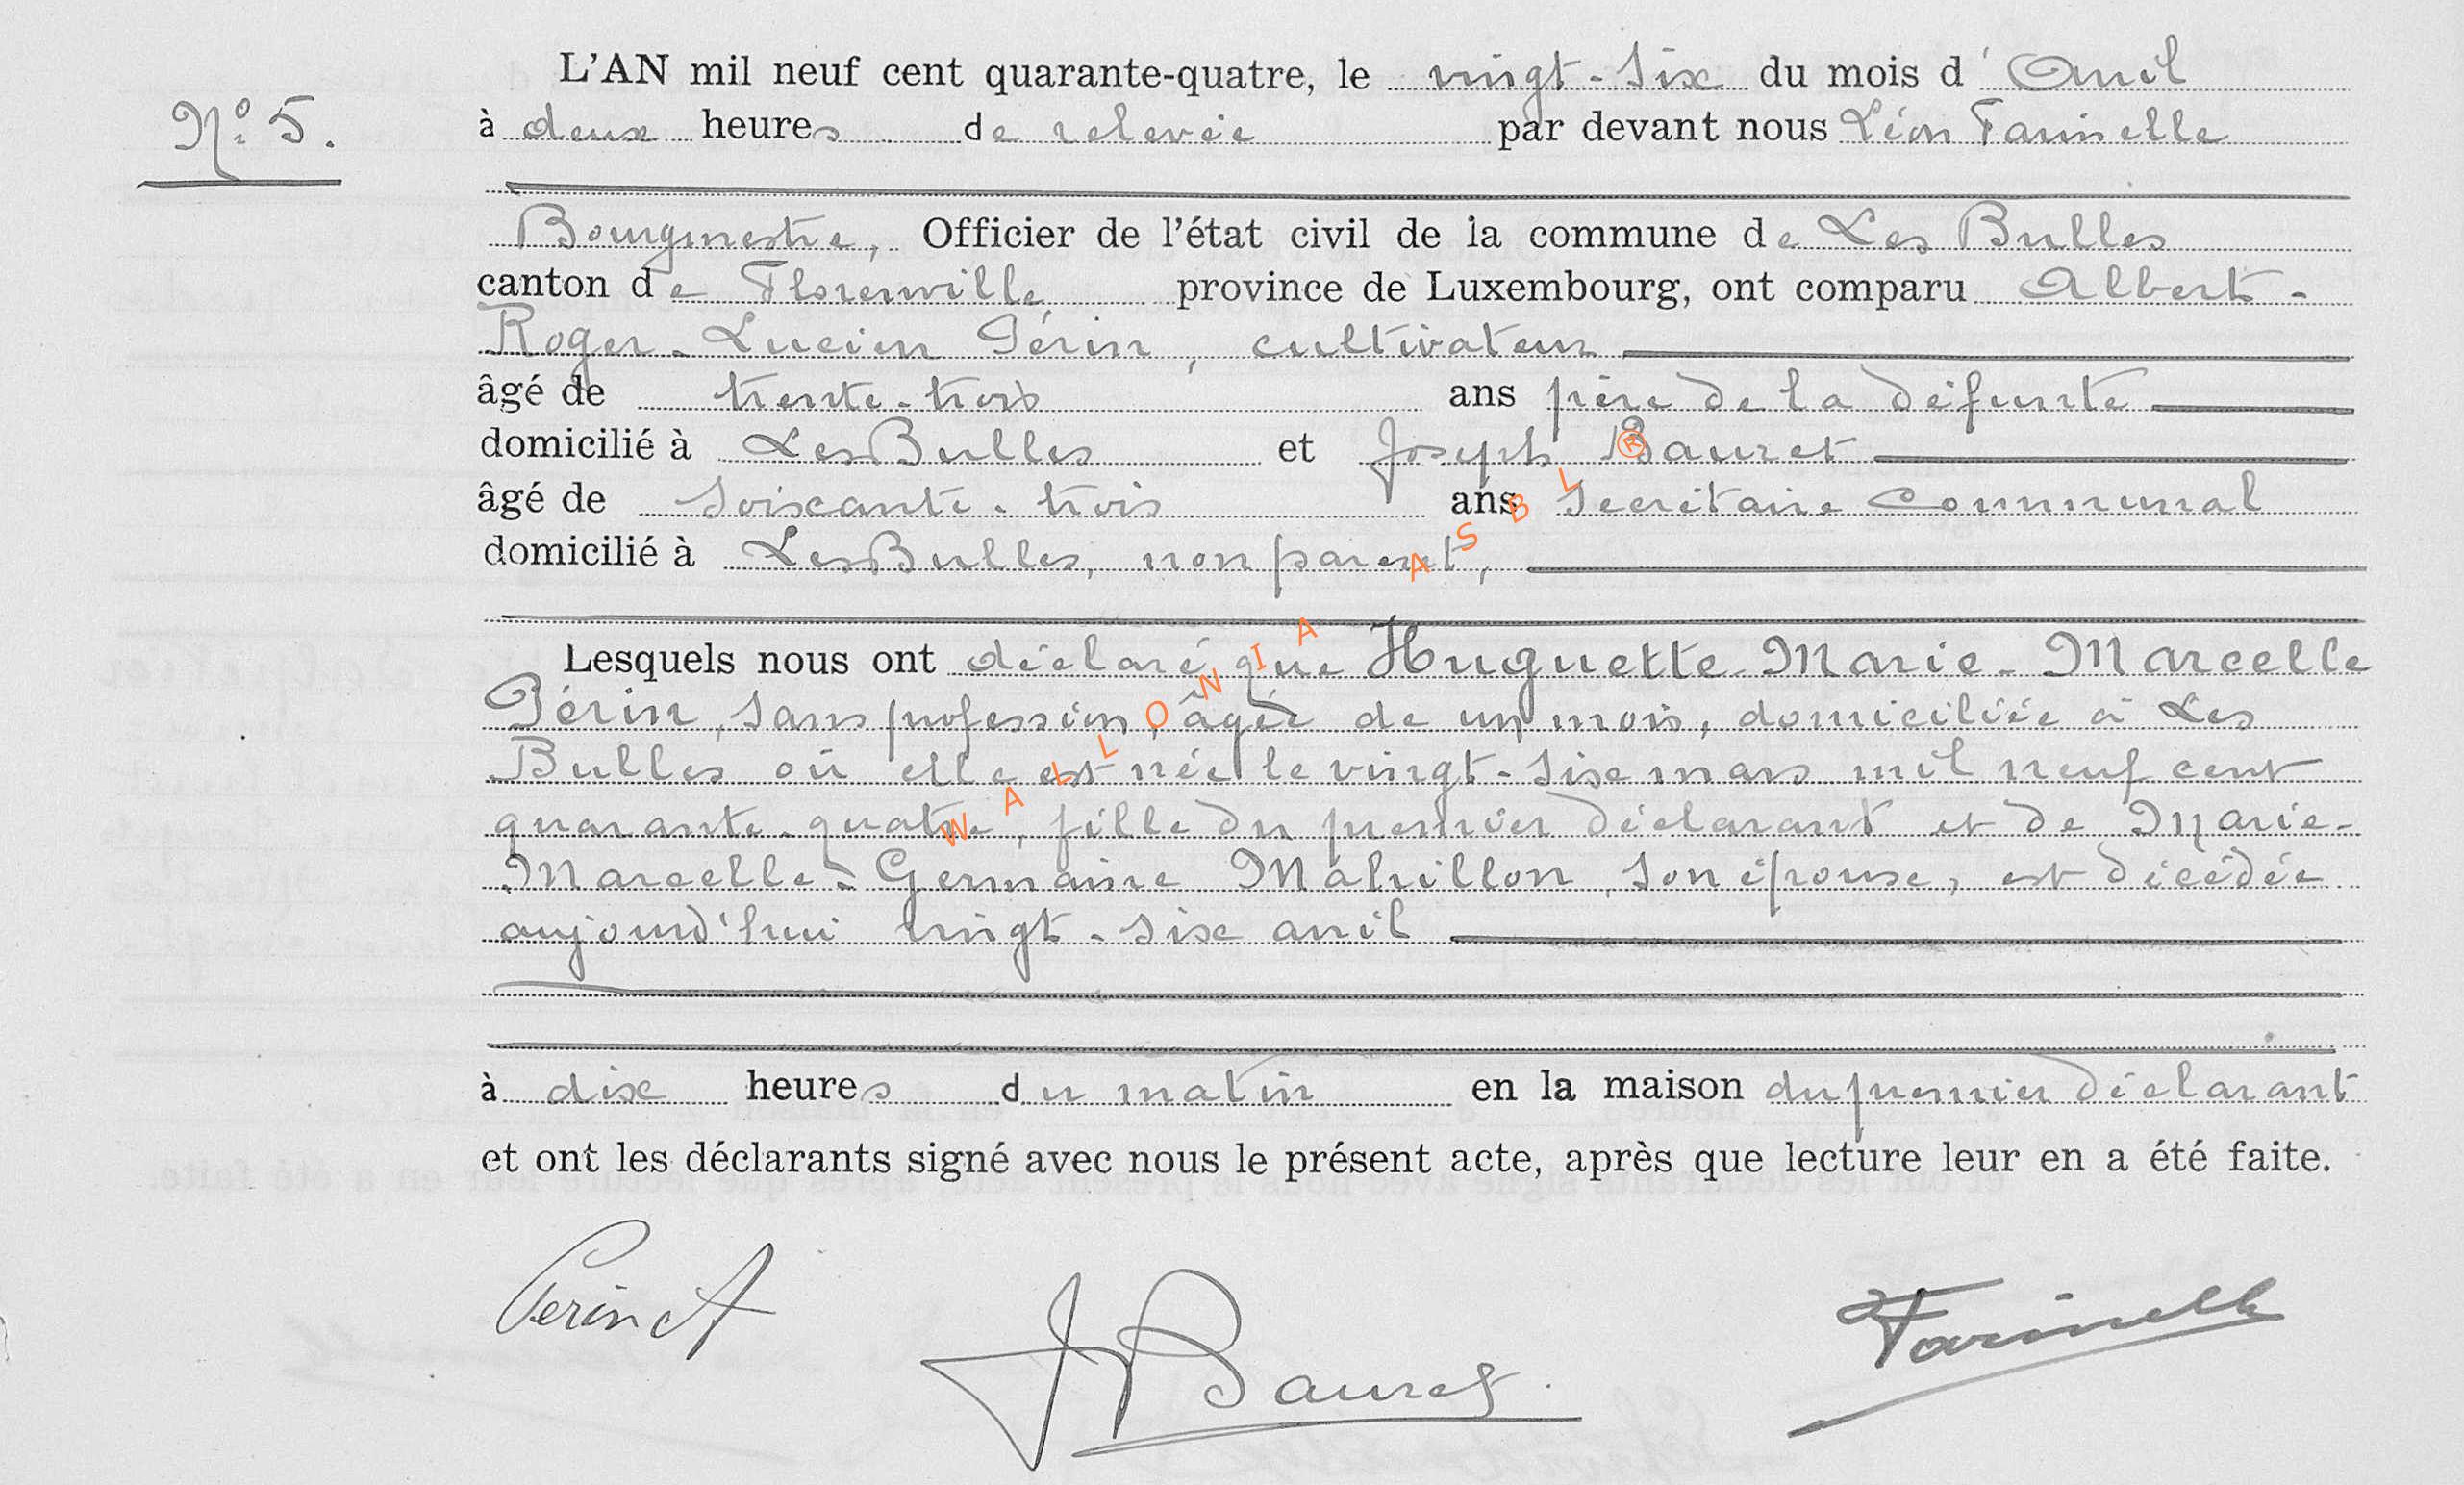 L'AN mil neuf cent quarante-quatre, le vingt-six du mois d'Avril
N° 5.
à deux heures de relevée par devant nous Léon Farinelle
Bourgmestre, Officier de l'état civil de la commune de Les Bulles
canton de Florenville province de Luxembourg, ont comparu Albert-
Roger-Lucien Périn, cultivateur
âgé de trente-trois ans père de la défunte
domicilié à Les Bulles et Joseph Bauret
âgé de soixante-trois ans secrétaire communal
domicilié à Les Bulles, non parent,
Lesquels nous ont déclaré que Huguette-Marie-Marcelle
Périn, sans profession, âgée de un mois, domiciliée à Les
Bulles où elle est née le vingt-six mars mil neuf cent
quarante-quatre, fille du premier déclarant et de Marie-
Marcelle-Germaine Mahillon, son épouse, est décédée
aujourd'hui vingt-six avril
à dix heures du matin en la maison du premier déclarant
et ont les déclarants signé avec nous le présent acte, après que lecture leur en a été faite.
Perin A
J Bauret
Farinelle
WALLONIA ASBL ®